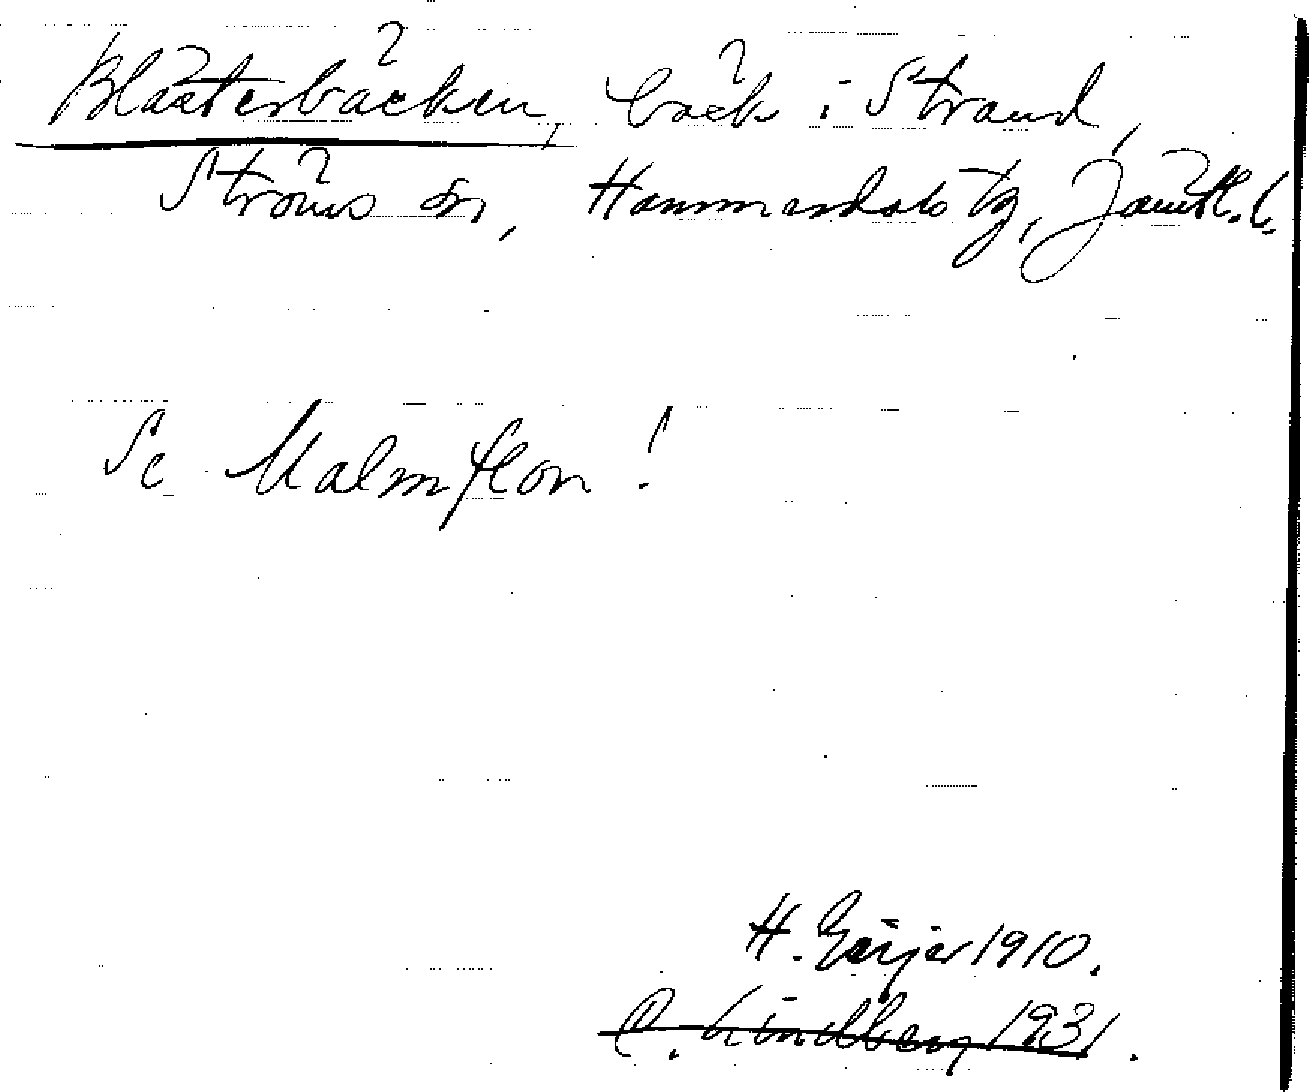 Blästerbäcken, bäck i Strand,
Ströms sn, Hammerdals tg, Jämtl. l.
Se Malmflon!
H. Geijer 1910.
C. Lindberg 1931.